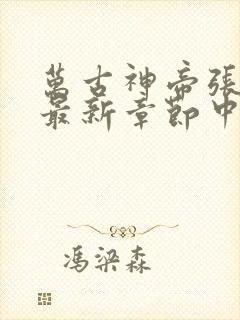 萬古神帝張
最新章節中
馮梁森